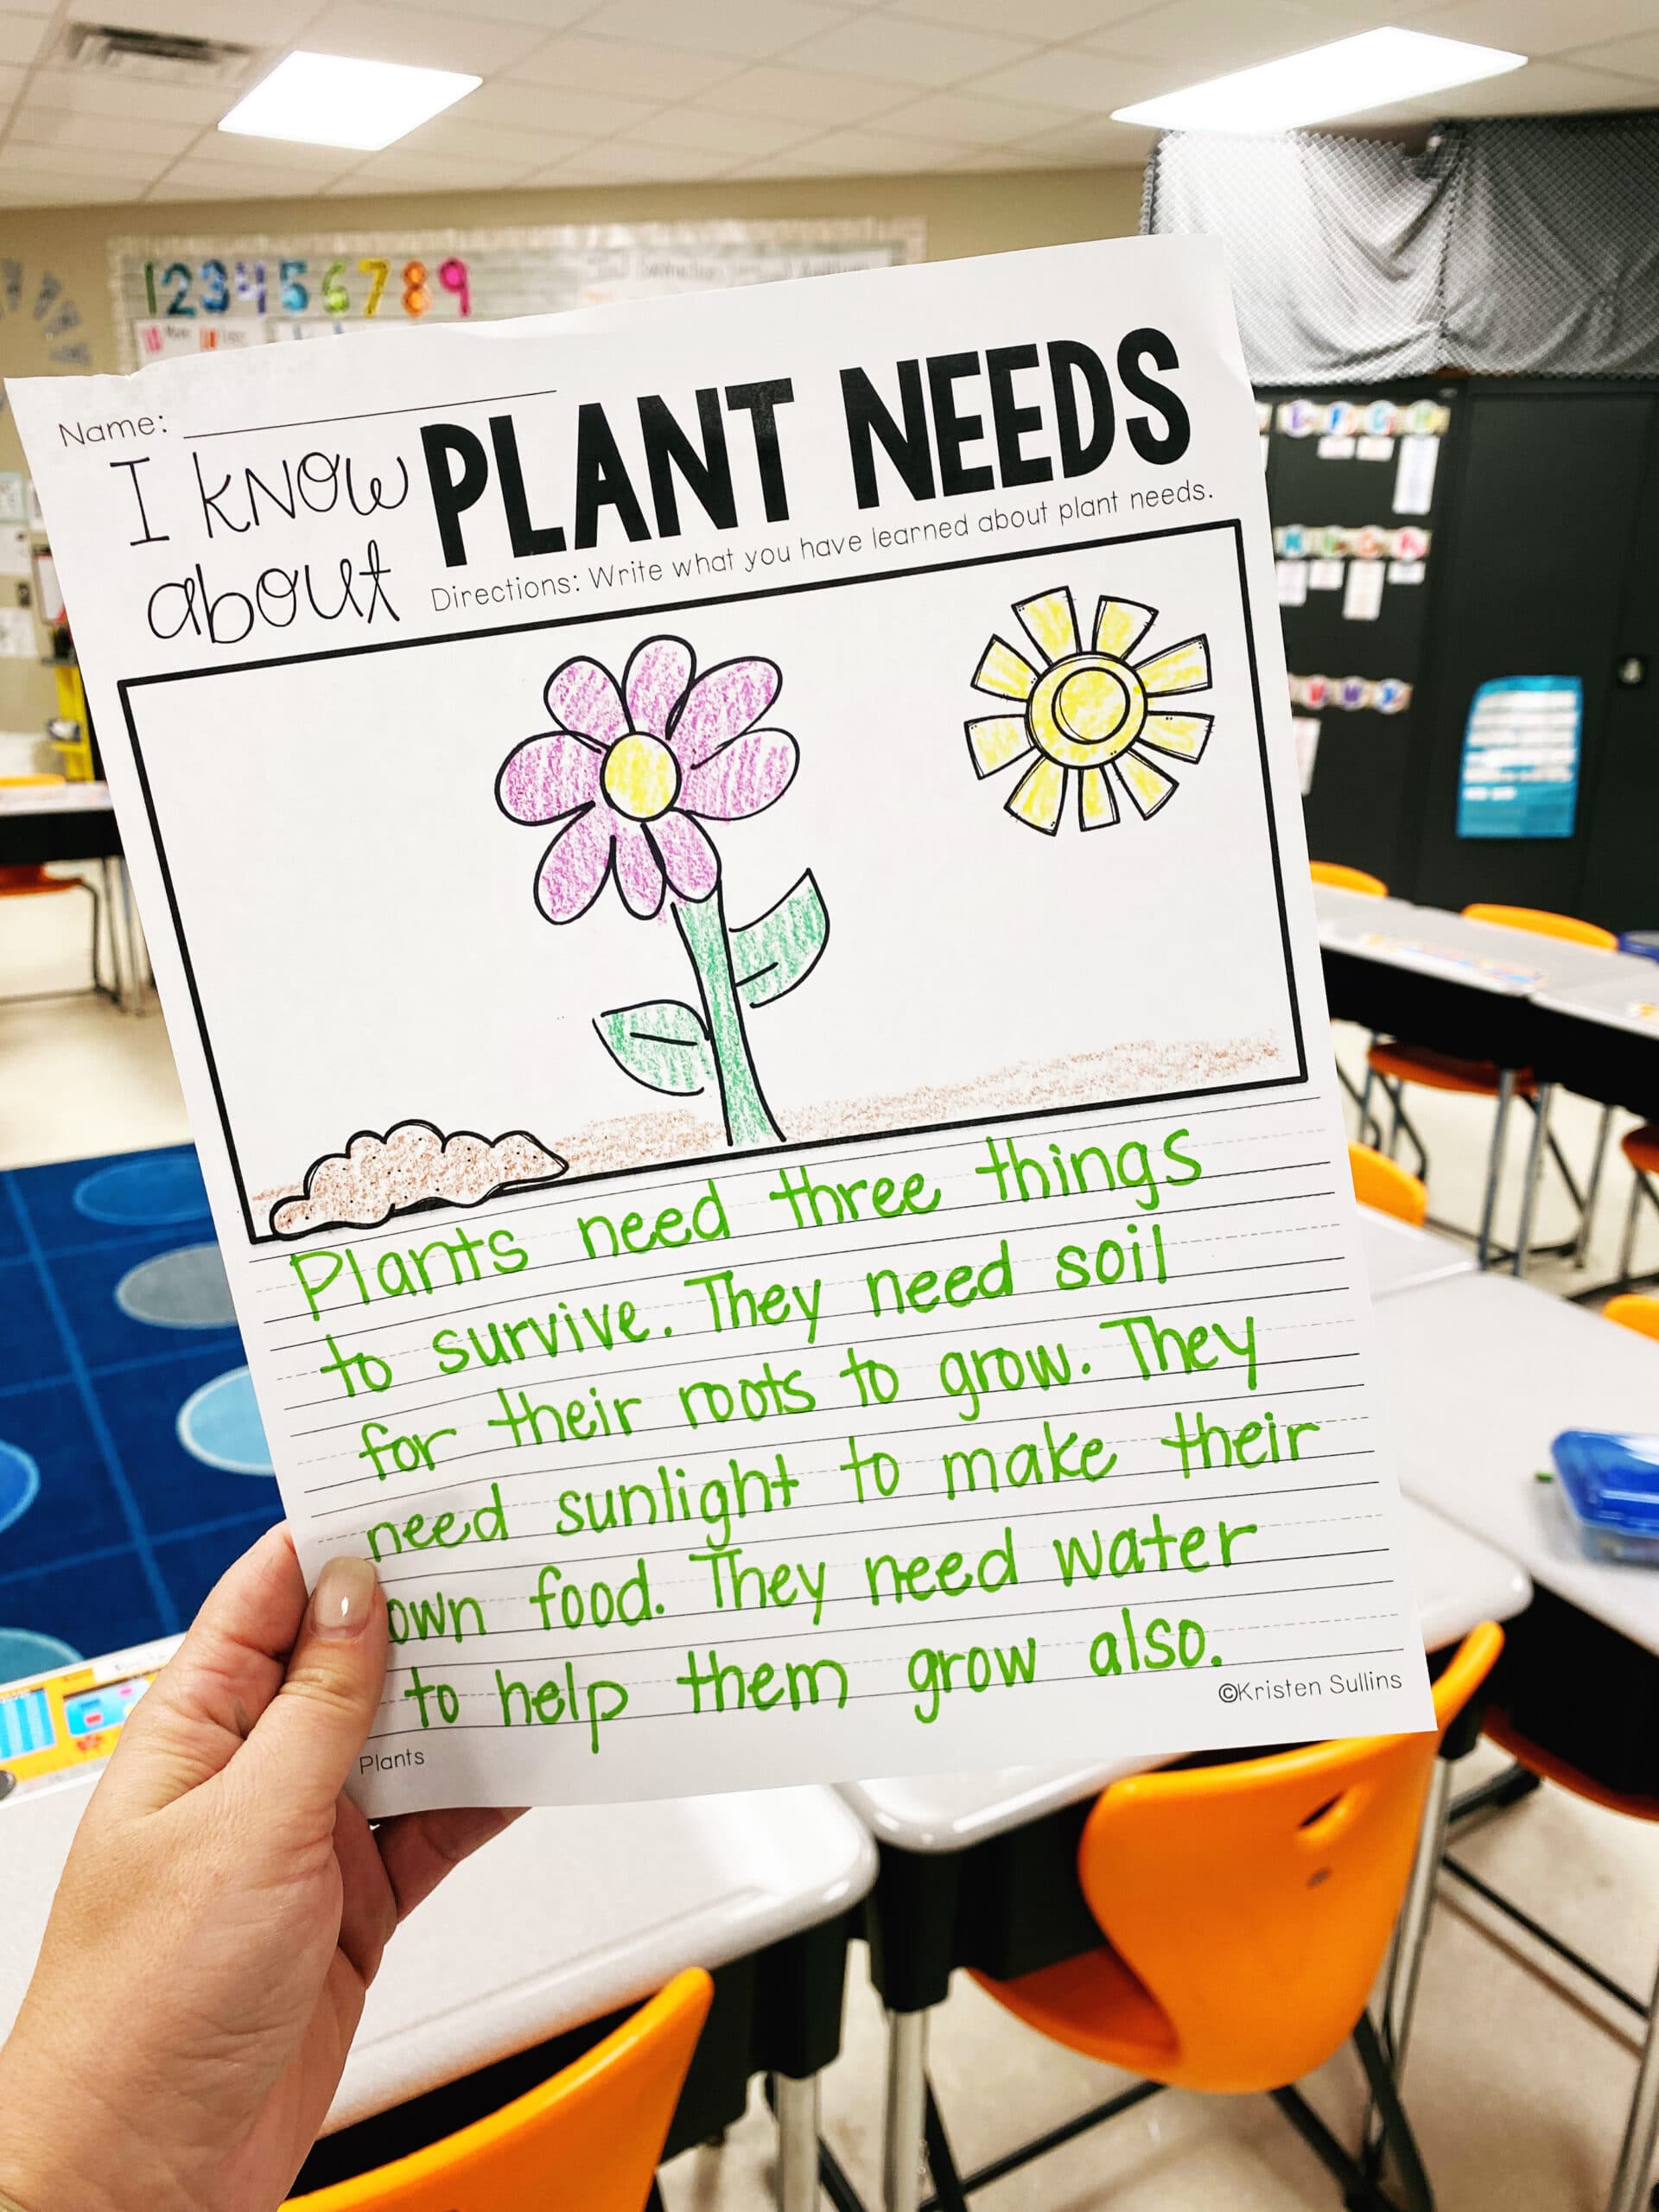 123456789
Name:
I know about PLANT NEEDS
Directions: Write what you have learned about plant needs.
Plants need three things
to survive. They need soil
for their roots to grow. They
need sunlight to make their
own food. They need water
to help them grow also.
©Kristen Sullins
Plants